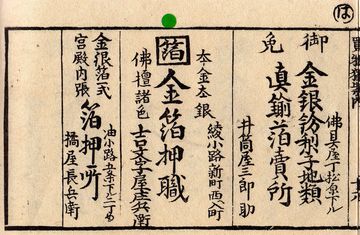 は
御免
佛具屋町松原下ル
金銀粉梨子地類
真鍮箔賣所
井筒屋三郎助
本金本銀
綾小路新町西入町
箔
金箔押職
佛壇諸色
吉文字屋庄兵衛
金銀箔一式
宮殿内張
箔押所
油小路五条下ル二丁め
橘屋長兵衛